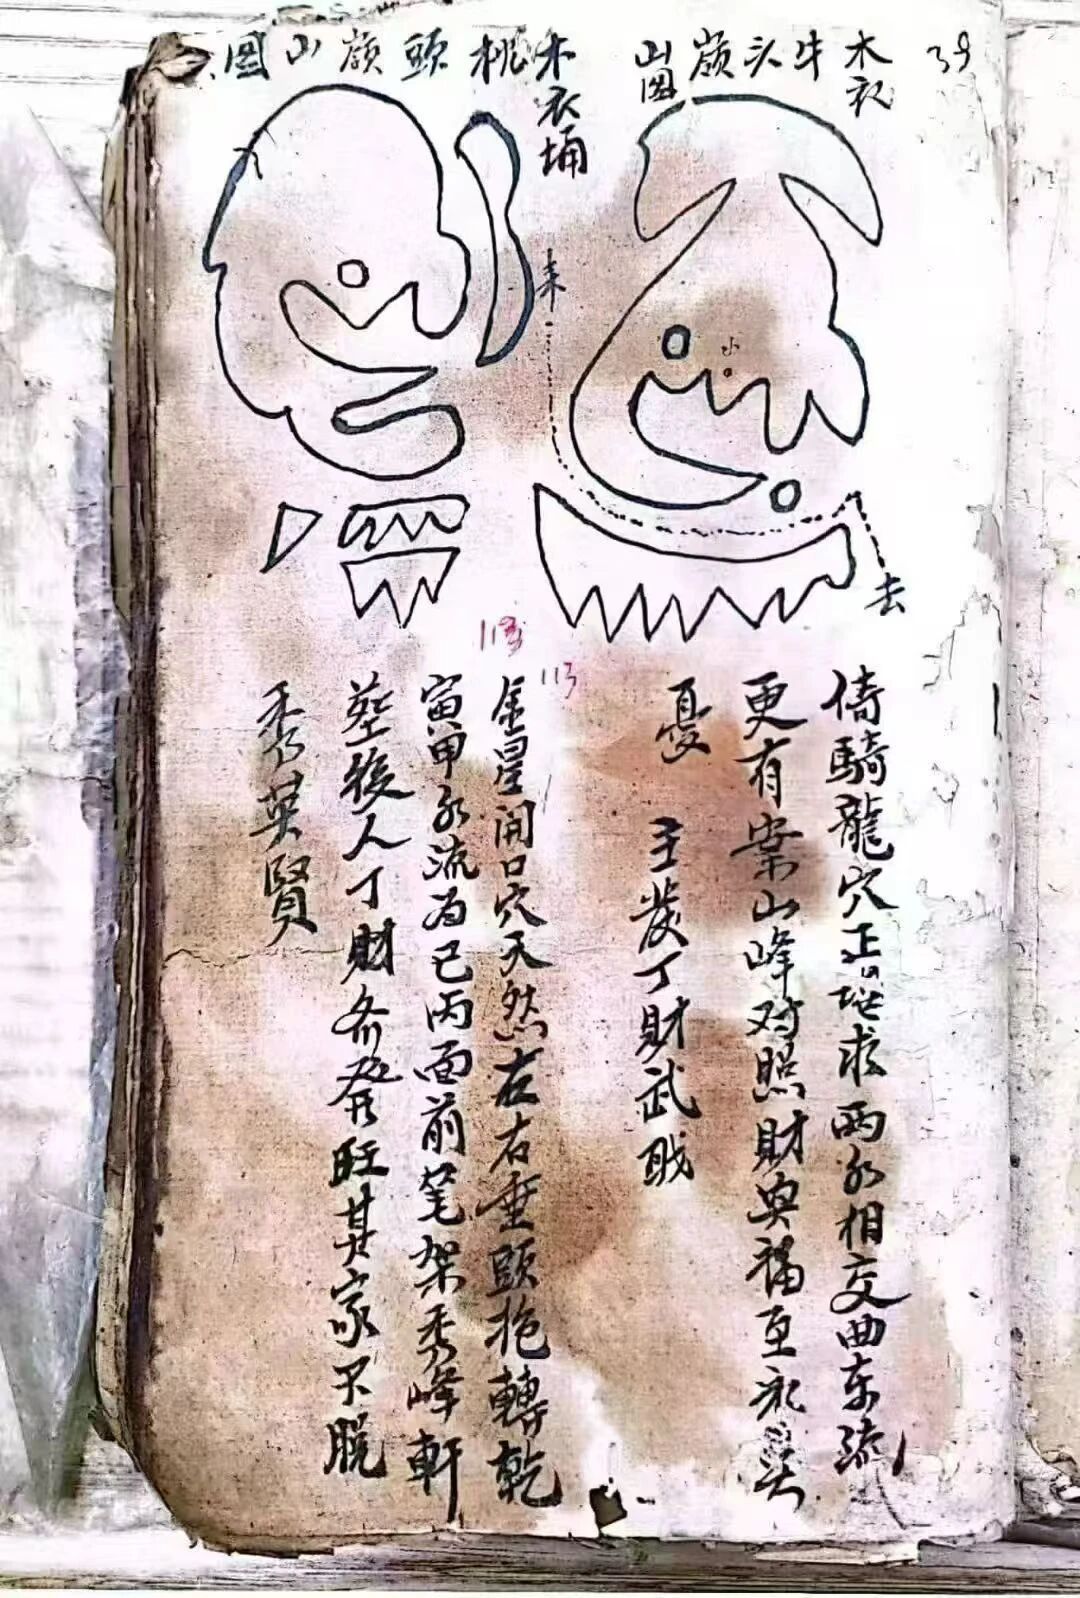 39
木衣
牛头嶺山圖
木衣埇
桃頭嶺山圖
来
小
去
倚騎龍穴正堪求两水相交曲东流
更有案山峰对照財與福至永無
憂　主發丁財武职
113
113
金星開口穴天然左右垂頭抱轉乾
寅甲水流为巳丙面前笔架秀峰軒
塟後人丁財齐發旺其家不脱
秀英賢